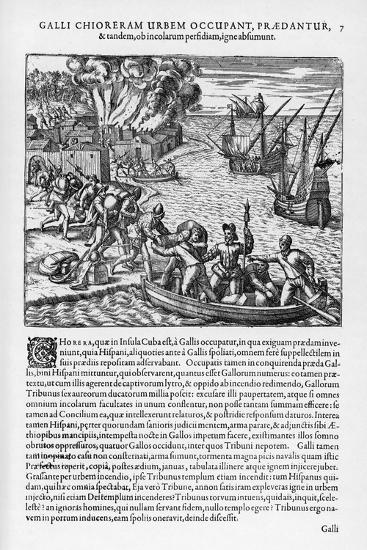 GALLI CHIORERAM URBEM OCCUPANT, PRÆDANTUR, 7
& tandem, ob incolarum perfidiam, igne absumunt.
CHORERA, quæ in Insula Cuba est, à Gallis occupatur, in qua exiguam prædam inve-
niunt, quia Hispani, aliquoties ante à Gallis spoliati, omnem ferè suppellectilem in
suis prædiis repositam adservabant. Occupatis tamen in conquirenda præda Gal-
lis, bini Hispani mittuntur, qui observarent, quantus esset Gallorum numerus: eo tamen præ-
textu, ut cum illis agerent de captivorum lytro, & oppido ab incendio redimendo, Gallorum
Tribunus sex aureorum ducatorum millia poscit: excusare illi paupertatem, atque si omnes
omnium incolarum facultates in unum conflentur, non posse tantam summam efficere: se
tamen ad Concilium ea, quæ intellexerunt relaturos, & postridie responsum daturos. Interea
tamen Hispani, præter quorundam sanioris judicii mentem, parare arma, & adjunctis sibi Æ-
thiopibus mancipiis, intempesta nocte in Gallos impetum facere, existimantes illos somno
obrutos oppressuros, quatuor Gallos occidunt, inter quos Tribuni nepotem. Galli tamen
tam casu non consternati, arma sumunt, tormenta magna picis navalis quam istic
Præfectus reperit, copia, postes ædium, januas, tabulata illinere atque ignem injicere jubet.
Grassante per urbem incendio, ipse Tribunus templum etiam incendit: tum Hispanus qui-
dam, qui hæc omnia spectabat, Eja verò Tribune, annon satis iram expleveras igne in urbem
injecto, nisi etiam Dei templum incenderes? Tribunus torvum intuens, quid ais, inquit, scele-
ste? an ignoras homines, qui nullam servant fidem, nullo templo egere? Tribunus ergo na-
vem in portum inducens, eam spoliis oneravit, deinde discessit.
Galli